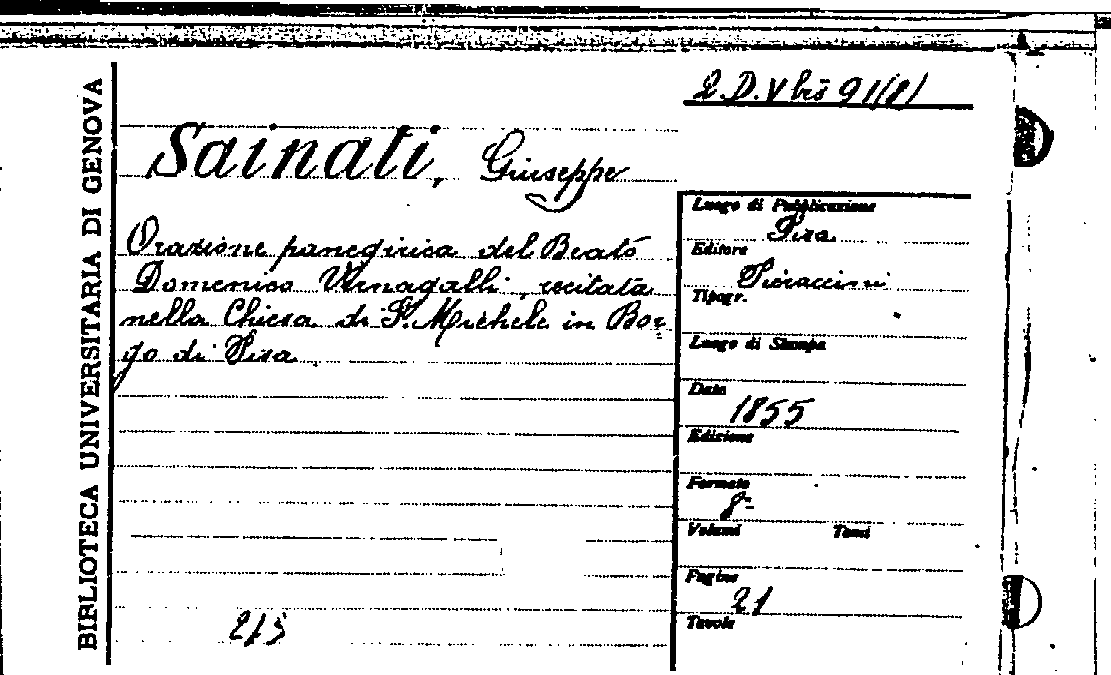 BIBLIOTECA UNIVERSITARIA DI GENOVA
2.D.V bis 91(8)
Sainati, Giuseppe
Orazione panegirica del Beato
Domenico Vernagalli, recitata
nella Chiesa di S. Michele in Bor=
go di Pisa
Luogo di Pubblicazione
Pisa
Editore
Pieraccini
Tipogr.
Luogo di Stampa
Data
1855
Edizione
Formato
8º
Volumi Tomi
Pagine
21
Tavole